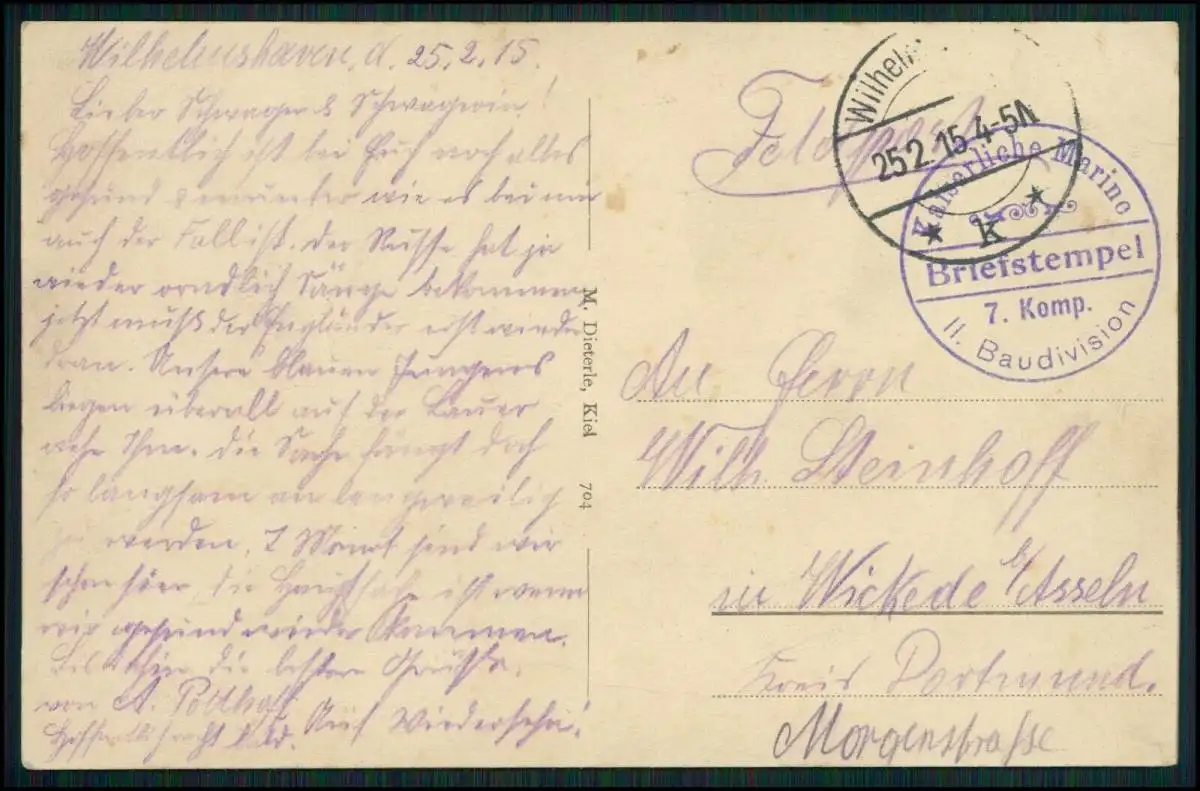 Wilhelmshaven, d. 25.2.15.
Lieber Schwager & Schwägerin!
Hoffentlich ist bei Euch noch alles
gesund & munter wie es bei mir
auch der Fall ist. Der Russe hat ja
wieder orndlich Sänge bekommen
jetzt muß der Engländer erst wieder
dran. Unsere blauen Jungens
liegen überall auf der Lauer
wehe Ihm. Die Sache fängt doch
so langsam an langweilig
zu werden, 7 Monat sind wir
schon hier, die Hauptsache ist wenn
wir gesund wieder kommen.
Bis dahin die besten Grüße,
von A. Potthoff
Hoffentlich recht bald. Auf Wiedersehn!
M. Dieterle, Kiel 704
Feldpost
Wilhelms
25.2.15.4-5N
K
Kaiserliche Marine
Briefstempel
7. Komp.
II. Baudivision
An Herrn
Wilh. Steinhoff
in Wickede b/Asseln
Kreis Dortmund.
Morgenstraße